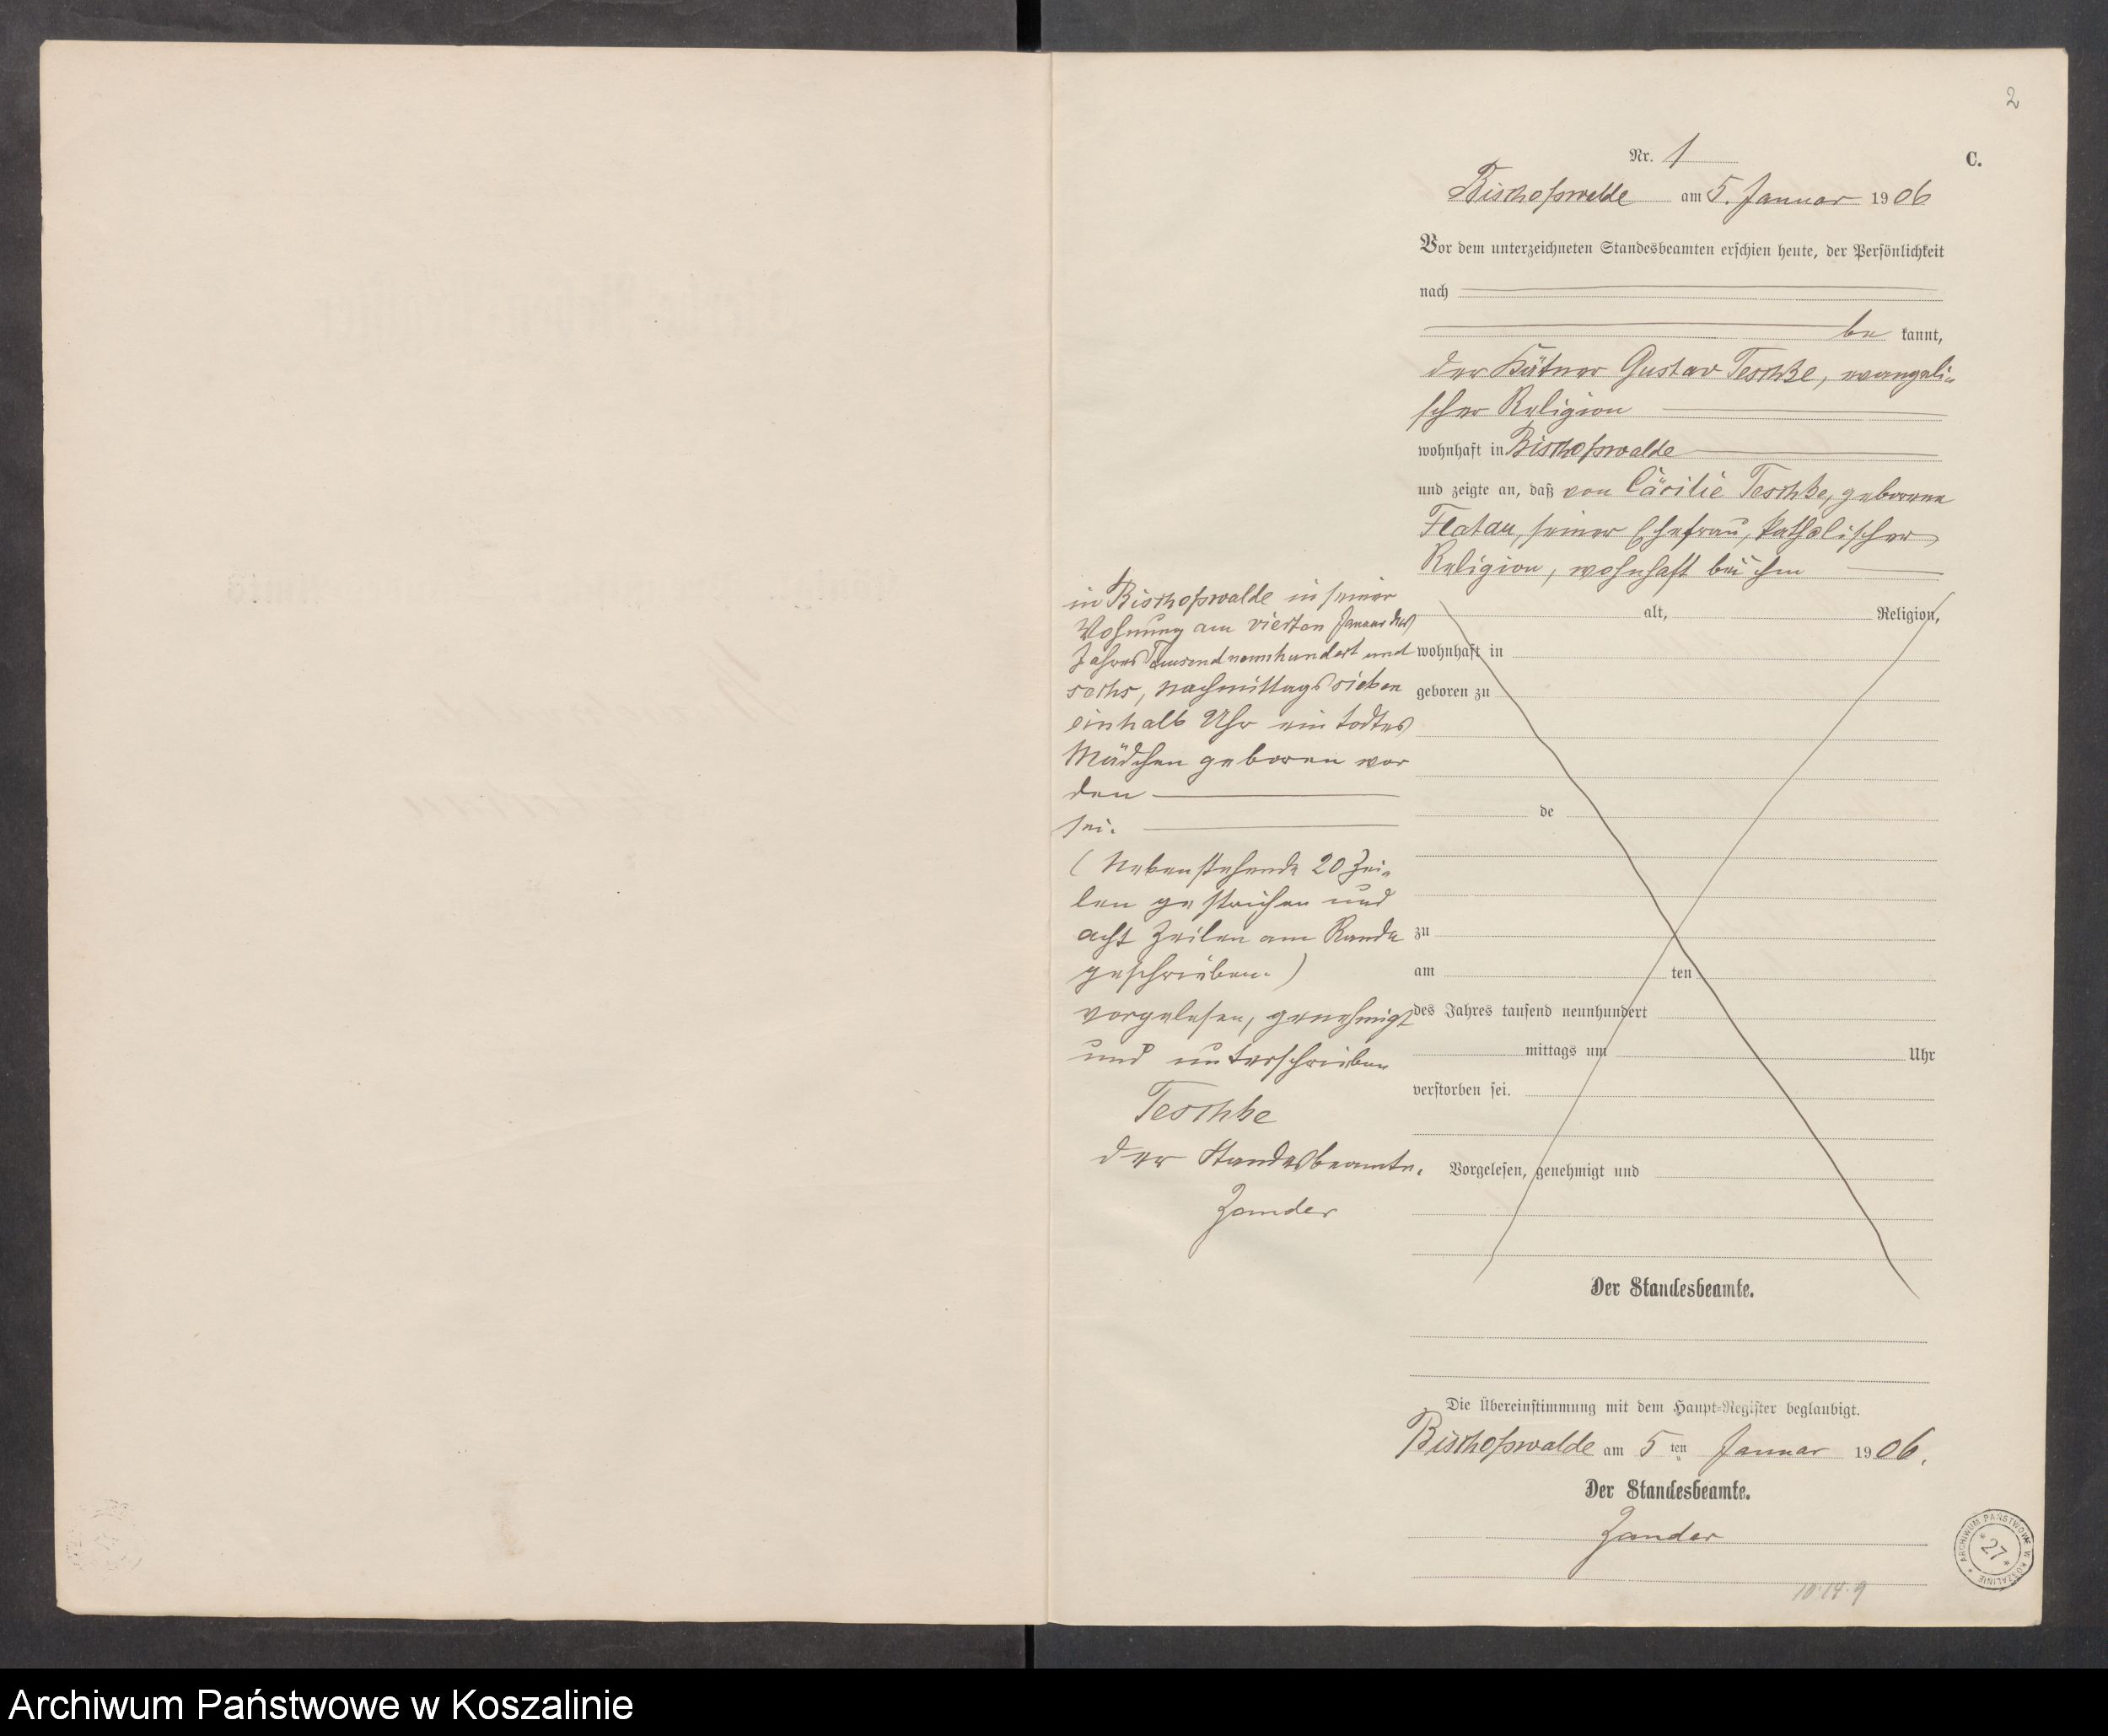 2
Nr. 1
C.
Bischofswalde am 5. Januar 1906
Vor dem unterzeichneten Standesbeamten erschien heute, der Persönlichkeit
nach
be kannt,
der Kätner Gustav Teschke, evangeli-
scher Religion
wohnhaft in Bischofswalde
und zeigte an, daß von Cäcilie Teschke, geborene
Flatau, seiner Ehefrau, katholischer
Religion, wohnhaft bei ihm
in Bischofswalde in seiner
Wohnung am vierten Januar des
Jahres Tausend neunhundert und
sechs, Nachmittags sieben
einhalb Uhr ein todtes
Mädchen geboren wor
den
sei.
(Nebenstehende 20 Zei-
len gestrichen und
acht Zeilen am Rande
geschrieben.)
vorgelesen, genehmigt
und unterschrieben
Teschke
der Standesbeamte.
Zander
alt, Religion,
wohnhaft in
geboren zu
de
zu
am ten
des Jahres tausend neunhundert
mittags um Uhr
verstorben sei.
Vorgelesen, genehmigt und
Der Standesbeamte.
Die Übereinstimmung mit dem Haupt-Register beglaubigt.
Bischofswalde am 5 ten Januar 1906.
Der Standesbeamte.
Zander
ARCHIWUM PAŃSTWOWE W KOSZALINIE
*27*
Archiwum Państwowe w Koszalinie